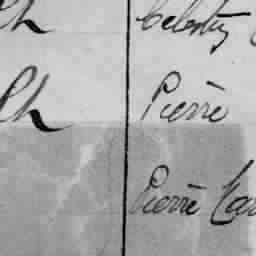 Ch Celestin
Ch Pierre
Pierre